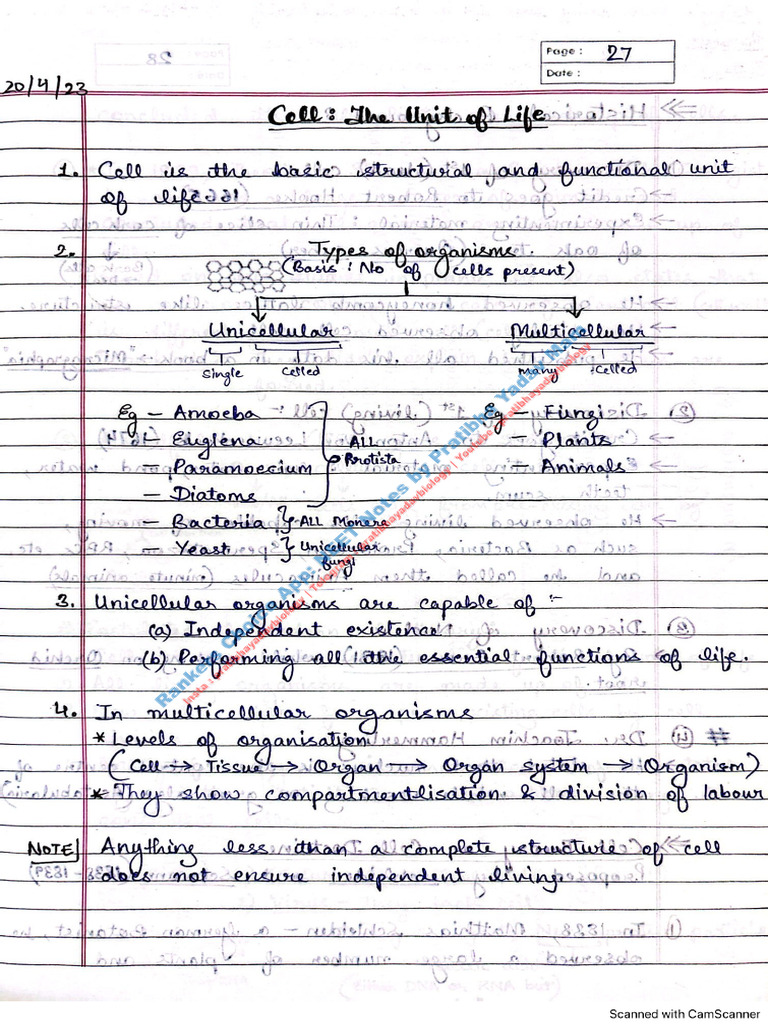 Page : 27
Date :
20/4/23
Cell : The Unit of Life
1. Cell is the basic structural and functional unit
of life
2. Types of organisms.
(Basis : No of cells present)
Unicellular
Multicellular
single celled
many celled
Eg – Amoeba
– Euglena
– Paramoecium
– Diatoms
All Protista
– Bacteria } All Monera
– Yeast } Unicellular fungi
Eg – Fungi
– Plants
– Animals
3. Unicellular organisms are capable of :-
(a) Independent existence
(b) Performing all the essential functions of life.
4. In multicellular organisms
* Levels of organisation
(Cell → Tissue → Organ → Organ system → Organism)
* They show compartmentlisation & division of labour
NOTE Anything less than a complete structure of cell
does not ensure independent living.
NEET Notes by Pratibha Yadav Mam
Scanned with CamScanner